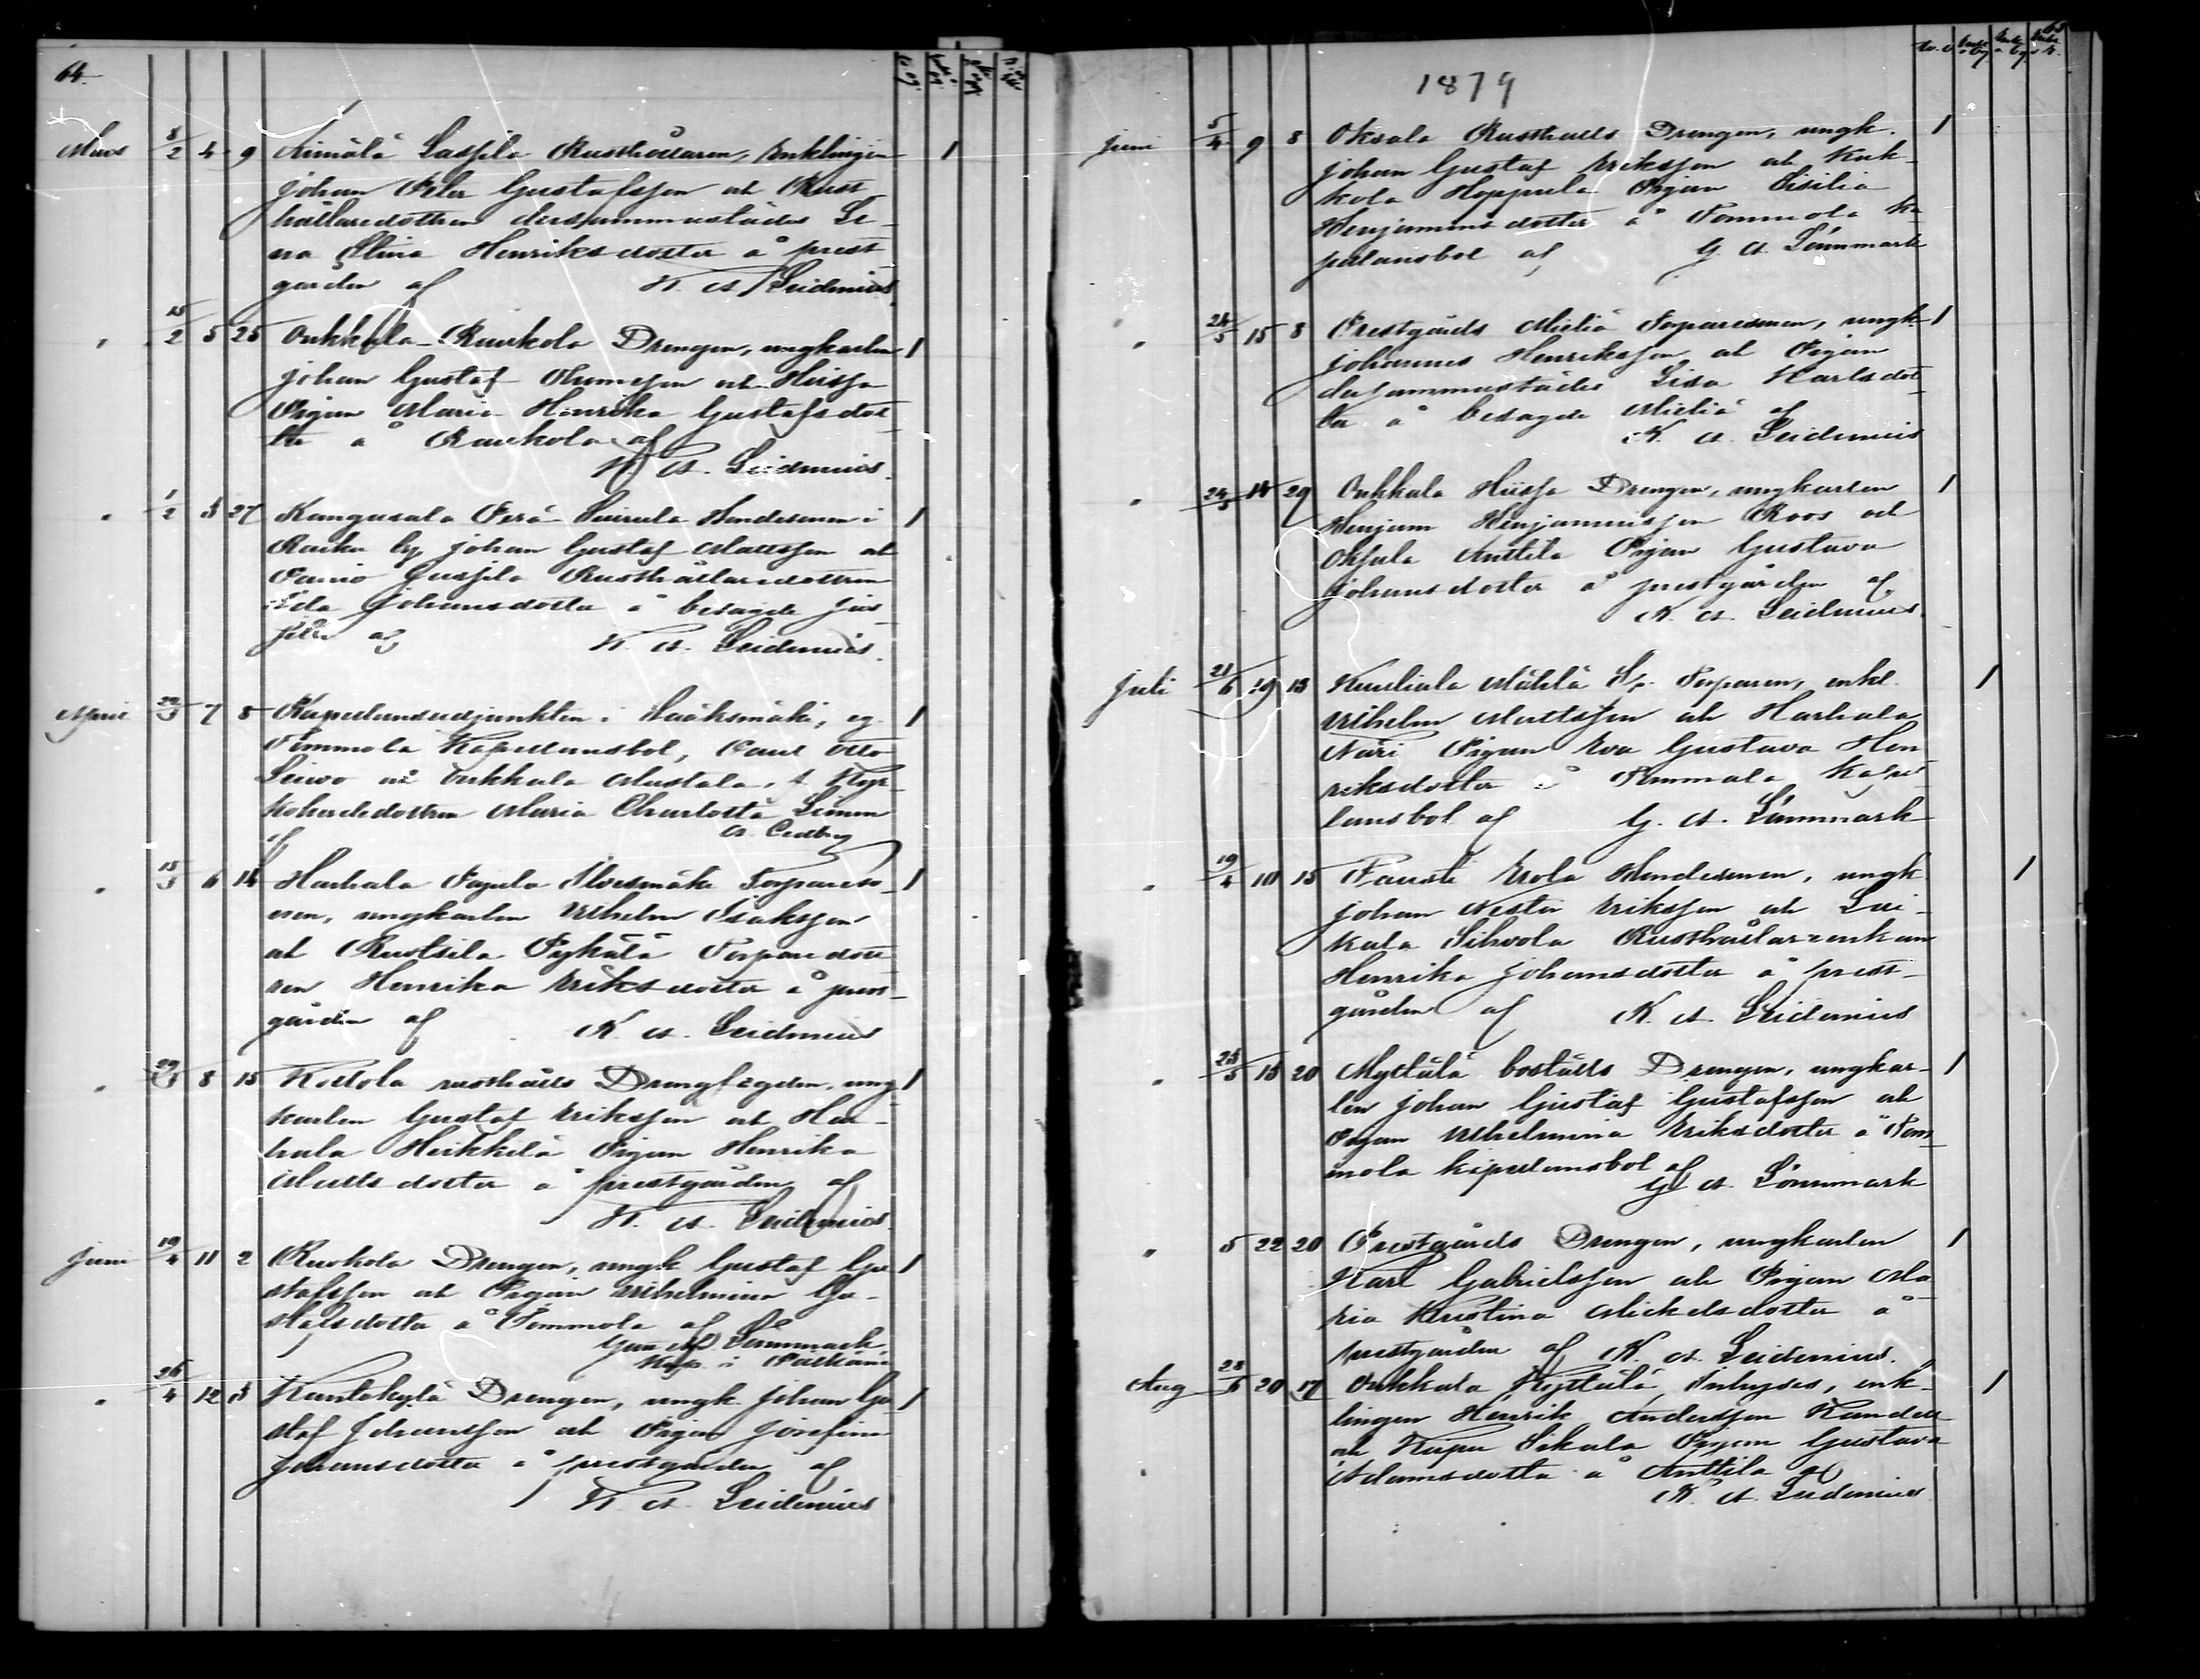 64.
Mars 8/2 4 9 Äimälä Lassila Rusthållaren, Enklingen 1
Johan Peter Gustafsson och Rust-
hållaredottren dersammastädes Le-
na Stina Henriksdotter å prest
gården af K. A. Leidenius.
" 15/2 5 25 Onkkala Ruskola Drengen, ungkarlen 1
Johan Gustaf och Hiissa
Pigan Maria Henrika Gustafsdot-
ter å Ruskola af
K. A. Leidenius.
" 1/2 3 27 Kangasala Perä Hemmansson i 1
by Johan Gustaf Mattsson och
Jussila Rusthållaredottren
Ida Johansdotter å besagde Jus-
sila af K. A. Leidenius.
April 22/3 7 8 Kapellansadjunkten i Sääksmäki, eg. 1
Tommola Kapellansbol, Paul Otto
och Onkkala Mustala, f. Kyr-
koherdedottren Maria Charlotta Limon
af A. Cedberg
" 15/3 6 14 Harhala Papula Torpareso- 1
nen, ungkarlen Vilhelm Isaksson
och Ruotsila Pykälä Torparedott-
ren Henrika Eriksdotter å prest-
gården af K. A. Leidenius
" 29/3 8 15 Kostola rusthålls Drengfogden, ung 1
karlen Gustaf Eriksson och Har-
hala Heikkilä Pigan Henrika
Mattsdotter å prestgården af
K. A. Leidenius.
Juni 19/4 11 2 Ruskola Drengen, ungk. Gustaf Gu- 1
stafsson och Pigan Vilhelmina Gu-
stafsdotter å Tommola af
Lönnmark,
Kapl. i Pälkäne
" 26/4 12 3 Kantokylä Drengen, ungk. Johan Gu- 1
staf Johansson och Pigan Josefina
Johansdotter å prestgården af
K. A. Leidenius
65
1879
Juni 5/4 9 8 Oksala Rusthålls Drengen, ungk. 1
Johan Gustaf Eriksson och Kuk-
kola Hoppula Pigan Sisilia
Benjaminsdotter å Tommola ka
pelansbol af G. A. Lönnmark
" 24/5 15 8 Prestgårds Torparesonen, ungk. 1
Johannes Henriksson och Pigan
dersammastädes Lisa Karlsdot-
ter å besagde af
K. A. Leidenius
" 24/5 14 29 Onkkala Hiissa Drengen, ungkarlen 1
Benjam Benjaminsson Roos och
Anttila Pigan Gustava
Johansdotter å prestgården af
K. A. Leidenius.
Juli 21/6 19 13 Kuuliala Mälilä Torparen, enkl. 1
Vilhelm Mattsson och Harhala
Näri Pigan Eva Gustava Hen
riksdotter å Tommola Kapel
lansbol af G. A. Lönnmark
" 19/4 10 15 Pausti Erola Bondesonen, ungk. 1
Johan Nestor Eriksson och Lai-
kala Sihvola Rusthållareenkan
Henrika Johansdotter å prest-
gården af K. A. Leidenius
" 25/5 13 20 Myttälä boställs Drengen, ungkar- 1
len Johan Gustaf Gustafsson och
Pigan Vilhelmina Eriksdotter å Tom-
mola kapellansbol af
G. A. Lönnmark
" 5 22 20 Prestgårds Drengen, ungkarlen 1
Karl Gabrielsson och Pigan Ma
ria Kristina Mickelsdotter å
prestgården af K. A. Leidenius.
Aug 28/6 20 17 Onkkala Inhyses, enk- 1
lingen Henrik Andersson
och Pigan Gustava
Adamsdotter å Anttila af
K. A. Leidenius